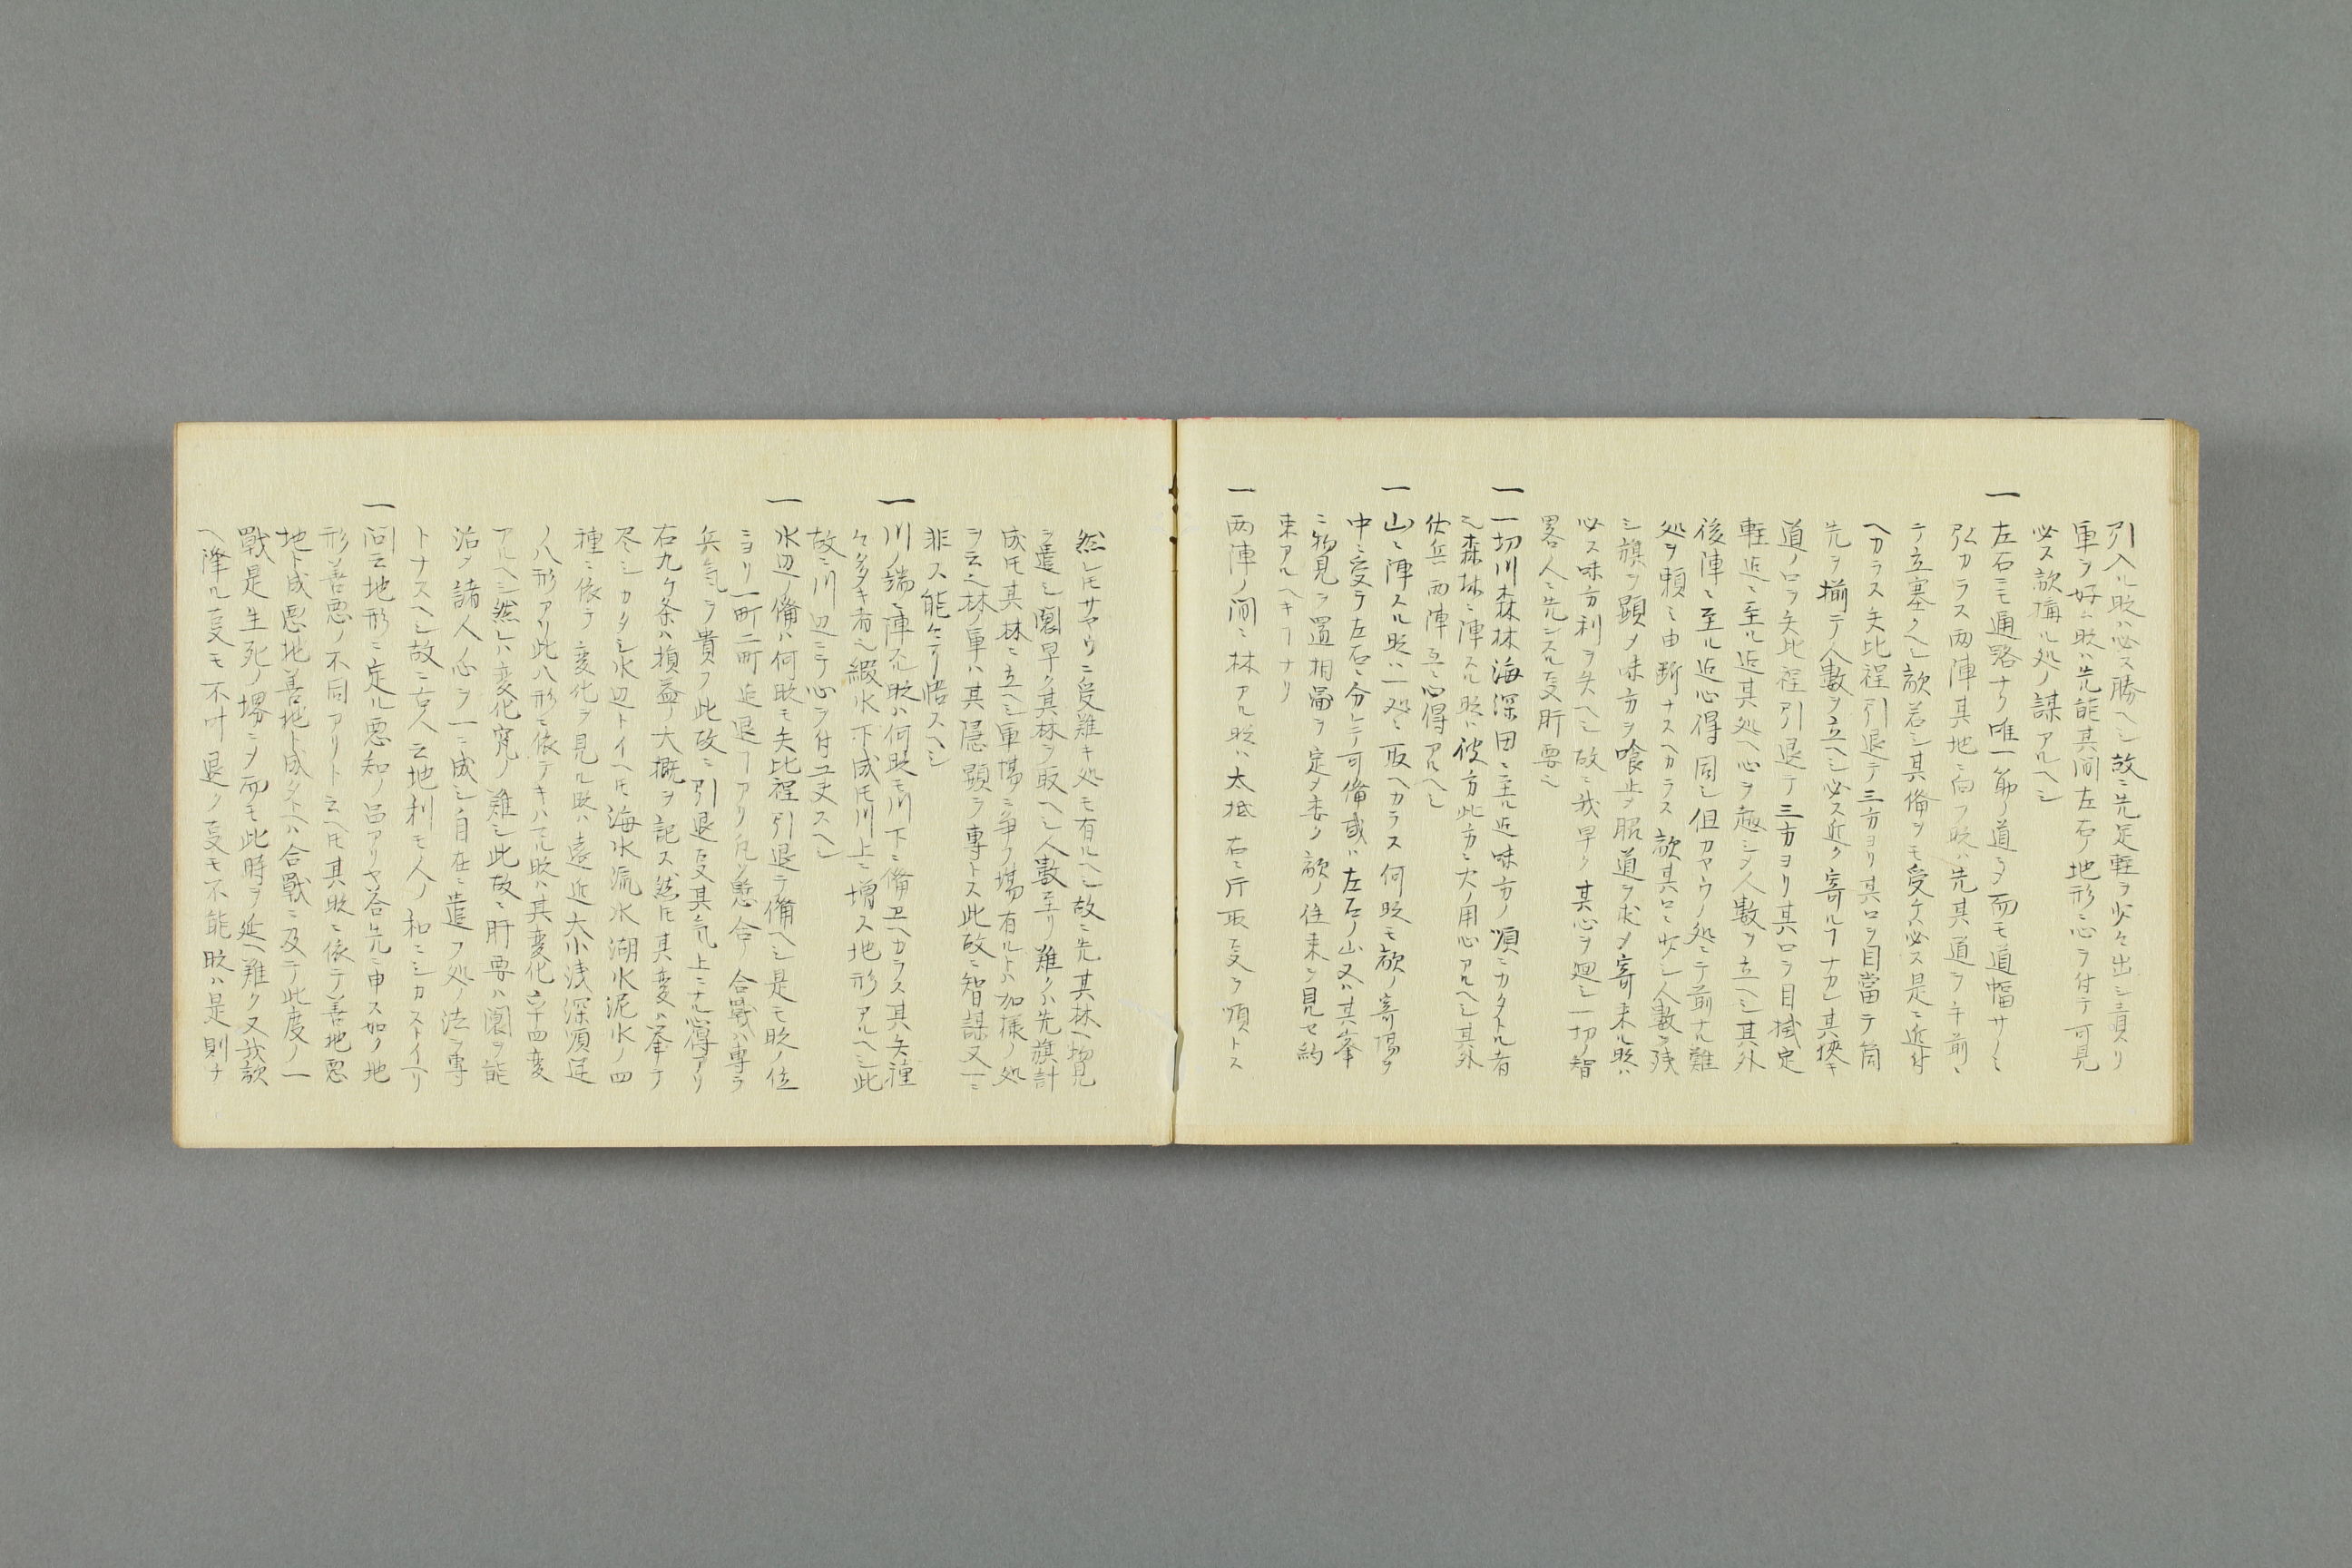 引入ル時ハ必ス勝ヘシ故ニ先足軽ヲ少々出シ負リ
軍ヲ好ム時ハ先能其間左右ノ地形ニ心ヲ付テ可見
必ス敵構ル処ノ謀アルヘシ
一左右ニモ通路ナク唯一筋ノ道ニメ而モ道幅サノミ
弘カラス両陣其地ニ向フ時ハ先其道ヲ手前ニ
テ立塞クヘシ敵若シ其備ヲモ受ケハ必ス是ニ近付
ヘカラス矢比程引退テ三方ヨリ其口ヲ目當テ筒
先ヲ揃テ人數ヲ立ヘシ必ス近ク寄ルヿナカレ其挾キ
道ノ口ヲ矢比程引退テ三方ヨリ其口ヲ目掛足
軽迄ニ至ル迄其処ヘ心ヲ趣シメ人數ヲ立ヘシ其外
後陣ニ至ル迄心得同シ但カヤウノ処ニテ前ナル難
処ヲ頼ミ由断ナスヘカラス敵其口ニ少シ人數ヲ残
シ旗ヲ顕メ味方ヲ喰止メ脇道ヲ求メ寄来ル時ハ
必ス味方利ヲ失ヘシ故ニ我早ク其心ヲ廻シ一切ノ智
畧人ニ先ンスル叓肝要也
一一切川森林海深田ニ至ル迄味方ノ順ニカタトル有
也森林ニ陣スル時ハ彼方此方ニ火ノ用心アルヘシ其外
伏兵両陣互ニ心得アルヘシ
一山ニ陣スル時ハ一処ニ取ヘカラス何時モ敵ノ寄場ヲ
中ニ受ラ左右ニ分レテ可備或ハ左右ノ山又ハ其峯
ニ物見ヲ置相圖ヲ定メ委ク敵ノ往来ヲ見セ約
束アルヘキヿナリ
一両陣ノ間ニ林アル時ハ太抵右ニ片取叓ヲ順トス
然レ𪜈サヤウニ受難キ処モ有ルヘシ故ニ先其林ヘ物見
ヲ遣シ圖早ク其林ヲ取ヘシ人數至リ難クハ先旗計
成𪜈其林ニ立ヘシ軍場ニ争ク場有ルトハ加様ノ処
ヲ云也林ノ軍ハ其隠顕ヲ專トス此故ニ智謀又一ニ
非ス能々ニリ悟スヘシ
一川ノ端ニ陣スル時ハ何時モ川下ニ備ヲ立ヘカラス其失種
々多キ者也縦水下成𪜈川上ニ増ス地形アルヘシ此
故ニ川辺ニテ心ヲ付工夫スヘシ
一水辺ノ備ハ何時モ矢比程引退テ備ヘシ是モ時ノ位
ニヨリ一町二町迄退ヿアリ凡ソ懸合ノ合戰ハ專ラ
兵氣ヲ貴フ此故ニ引退叓其氣上ニナル心得アリ
右九ケ条ハ損益ノ大概ヲ記ス然𪜈其変ハ挙テ
尽シカタシ水辺トイヘ𪜈海水流水湖水泥水ノ四
種ニ依テ変化ヲ見ル時ハ遠近大小浅深順逆
ノ八形アリ此八形ニ依テキハマル時ハ其変化六十四変
アルヘシ然レハ変化究メ難シ此故ニ肝要ハ圖ヲ能
治メ諸人ノ心ヲ一ニ成シ自在ニ遣フ処ノ法ヲ專
トナスヘシ故ニ古人云地利モ人ノ和ニシカストイヘリ
一問云地形ニ定ル悪知ノ品アリヤ答先ニ申ス如ク地
形善悪ノ不同アリト云ヘ𪜈其時ニ依テ善地悪
地ト成悪地善地ト成タトヘハ合戰ニ及テ此度ノ一
戰是生死ノ堺ニメ而モ此時ヲ延ヘ難ク又我敵
ヘ降ル叓モ不叶退ク叓モ不能時ハ是則ナ